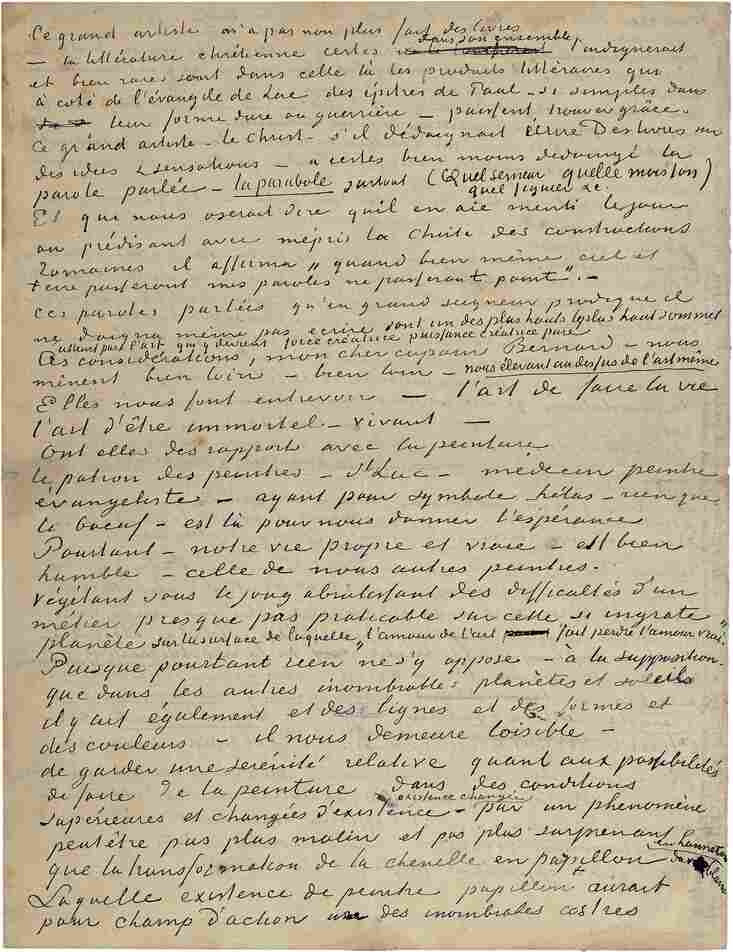 Ce grand artiste n'a pas non plus fait des livres
— la littérature chrétienne certes dans son ensemble, l'indignerait
et bien rares sont dans celle là les produits littéraires qui
à coté de l'évangile de Luc des epitres de Paul – si simples dans
leur forme dure ou guerrière – puissent trouver grâce.
Ce grand artiste – le Christ – s'il dédaignait écrire des livres sur
des idées & sensations – a certes bien moins dédaigné la
parole parlée – la parabole surtout (Quel semeur quelle moisson)
quel figuier &c.
Et qui nous oserait dire qu'il en aie menti le jour
ou prédisant avec mépris la chûte des constructions
Romaines il affirma „quand bien même ciel et
terre passeront mes paroles ne passeront point”. –
Ces paroles parlées qu'en grand seigneur prodigue il
ne daigna même pas ecrire sont un des plus hauts le plus haut sommet
atteint par l'art qui y devient force créatrice puissance créatrice pure
Ces considérations, mon cher copain Bernard – nous
mènent bien loin – bien loin – nous élevant au dessus de l'art même
Elles nous font entrevoir — l'art de faire la vie
l'art d'être immortel – vivant —
Ont elles des rapport avec la peinture
le patron des peintres – St Luc – médecin peintre
évangeliste – ayant pour symbole hélas – rien que
le boeuf – est là pour nous donner l'espérance
Pourtant – notre vie propre et vraie – est bien
humble – celle de nous autres peintres.
végétant sous le joug abrutissant des difficultés d'un
métier presque pas praticable sur cette si ingrate
planète sur la surface de laquelle „l'amour de l'art fait perdre l'amour vrai.”
Puisque pourtant rien ne s'y oppose – à la supposition
que dans les autres inombrables planètes et soleils
il y ait également et des lignes et des formes et
des couleurs – il nous demeure loisible –
de garder une sérénité relative quant aux possibilités
de faire de la peinture dans des conditions
existence changée
supérieures et changées d'existence – par un phenomène
peutêtre pas plus malin et pas plus surprenant
que la transformation de la chenelle en papillon du ver blanc en hanneton
Laquelle existence de peintre papillon aurait
pour champ d'action un des inombrables astres